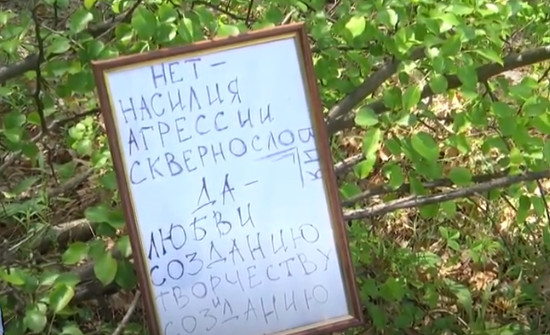 НЕТ -
НАСИЛИЯ
АГРЕССИИ
СКВЕРНОСЛОВ
ДА -
ЛЮБВИ
СОЗДАНИЮ
ТВОРЧЕСТВУ
И
СОЗИДАНИЮ